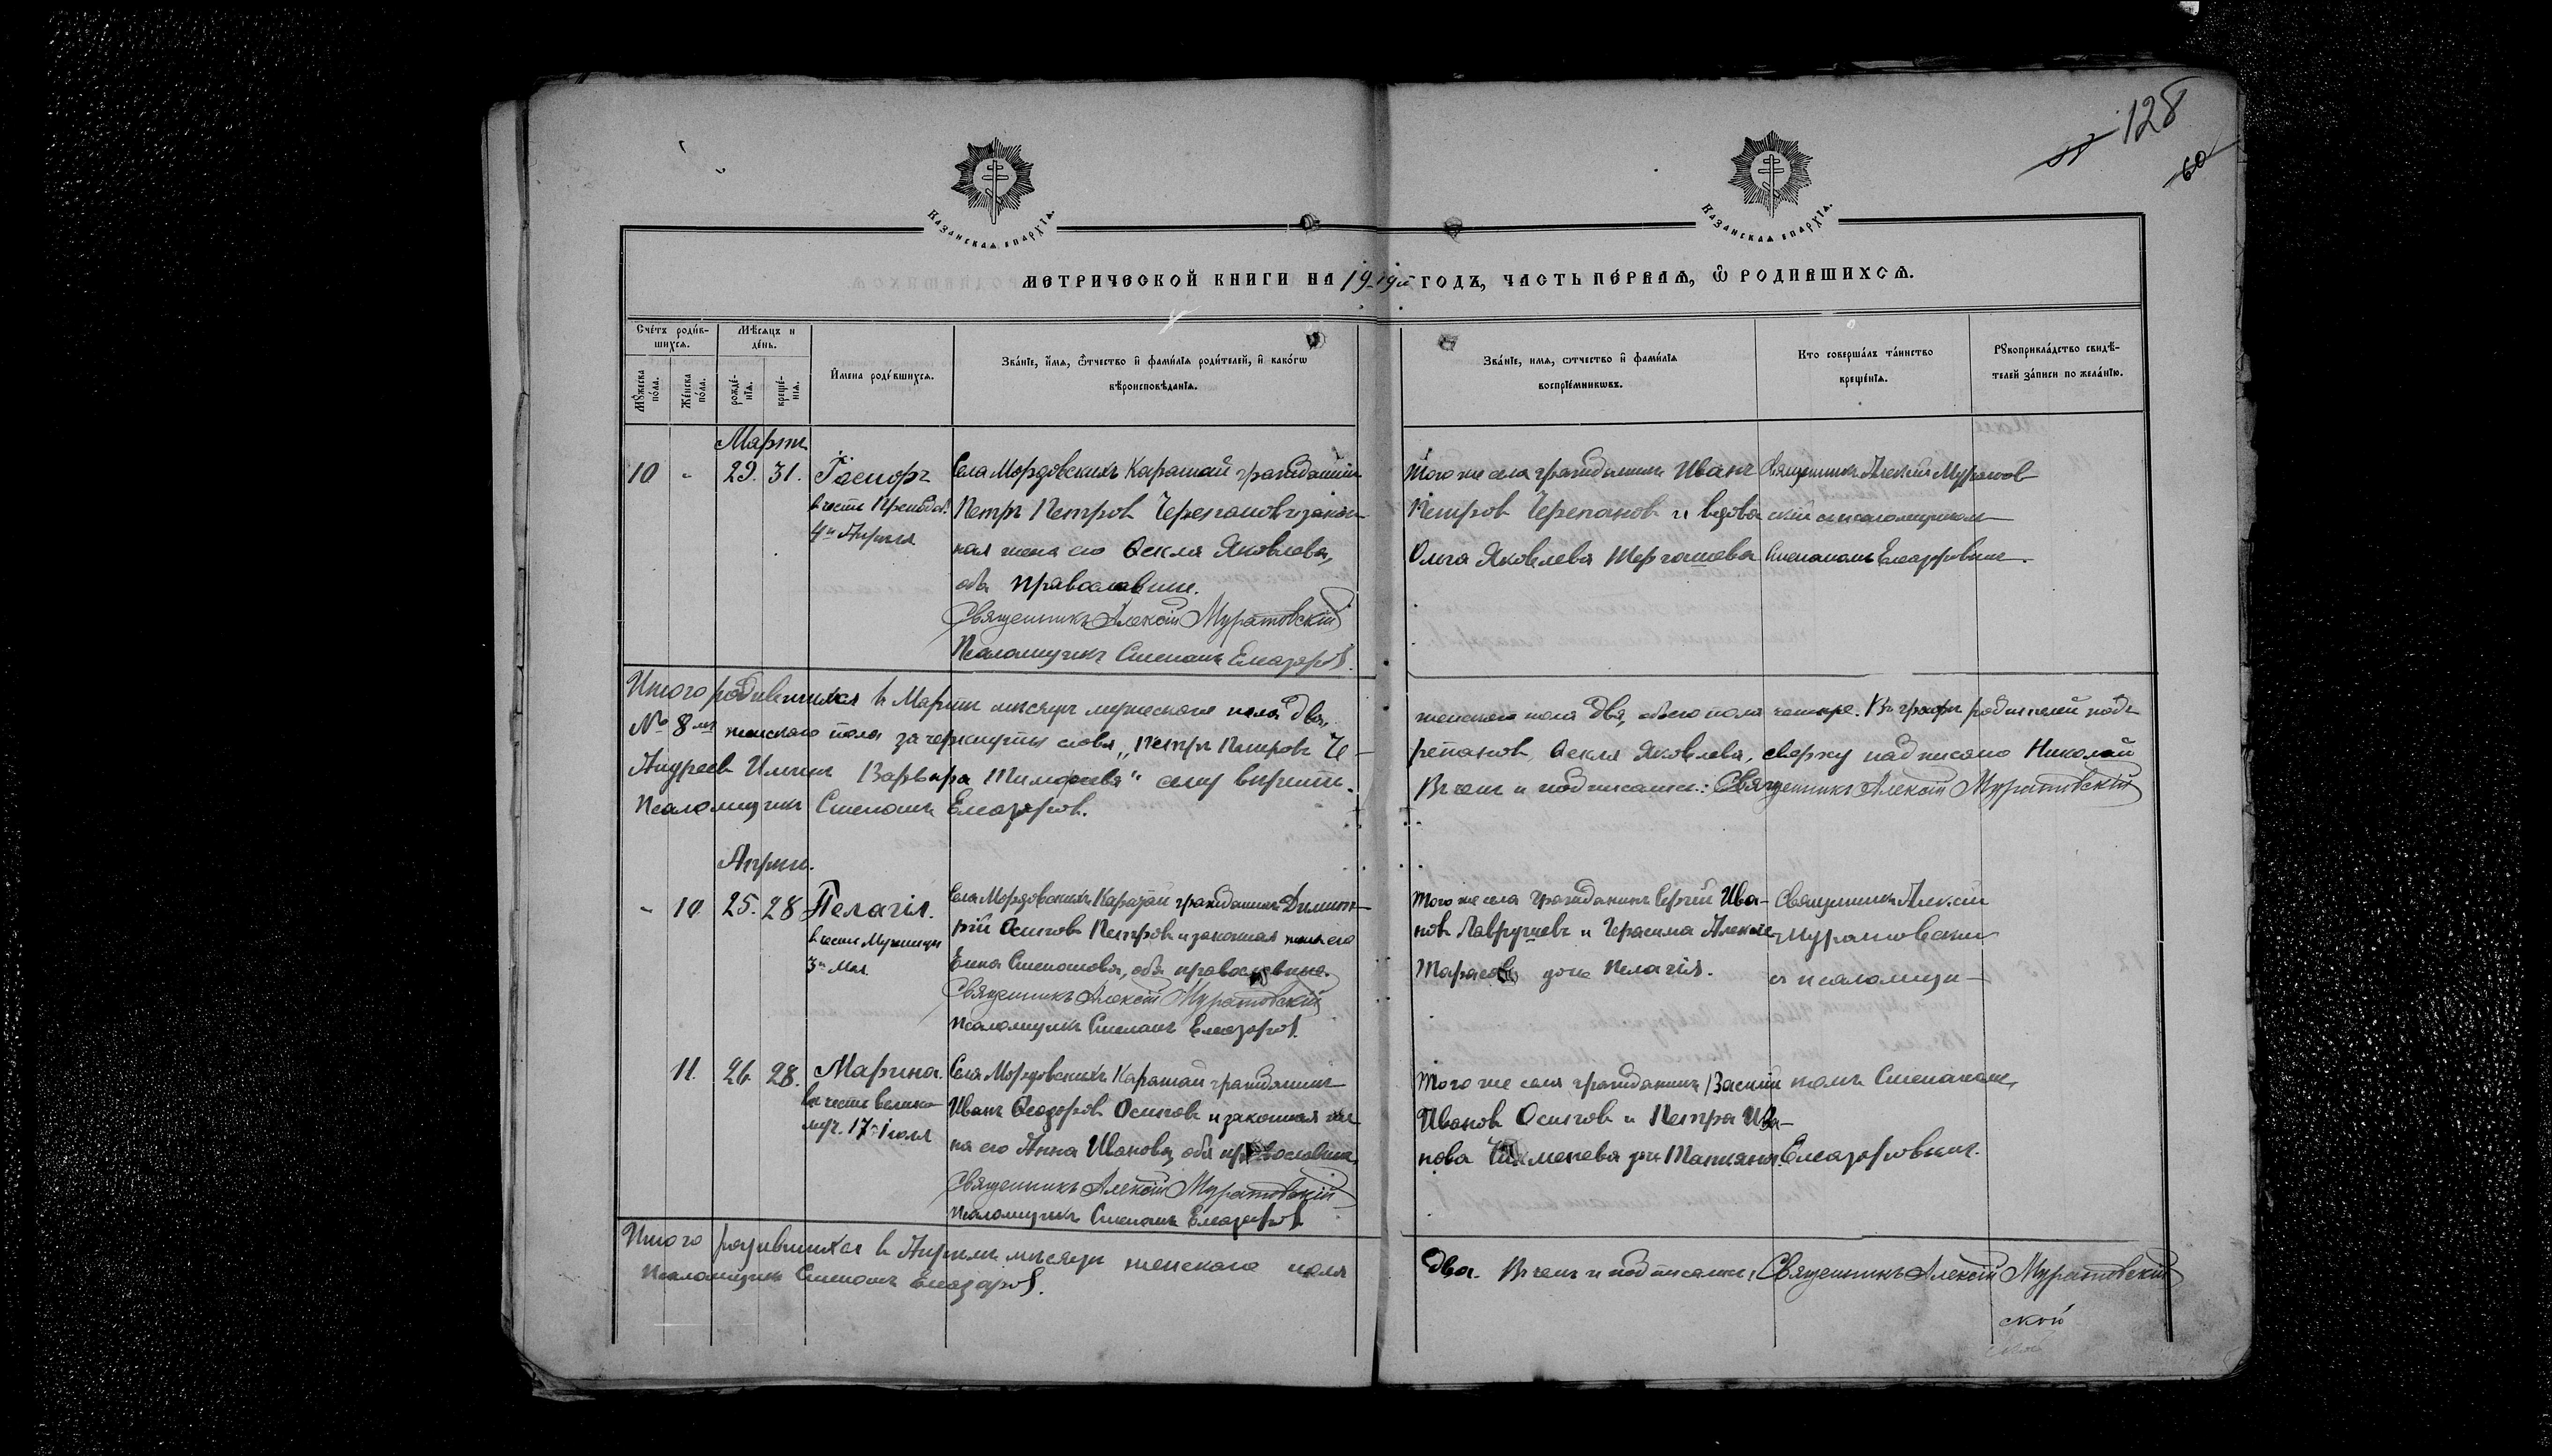 128
60
КАЗАНСКАѦ ЕПАРХЇѦ.
КАЗАНСКАѦ ЕПАРХЇѦ.
МЕТРИЧЕСКОЙ КНИГИ НА 1919й ГОДЪ, ЧАСТЬ ПЕ́РВАѦ, Ѽ РОДИВШИХСѦ.
Счéтъ роди́в-
шихсѧ.
Мѣ́сѧцъ и
дéнь.
Мꙋ́жеска
по́ла.
Же́нска
по́ла.
рождé-
нїѧ.
крещé-
нїѧ.
И҆мена роди́вшихсѧ.
Зва́нїе, и҆́мѧ, ѻ҆́тчество и҆ фами́лїѧ роди́телей, и҆ како́гѡ
вѣроисповѣ́данїѧ.
Зва́нїе, имѧ, ѻтчество и҆ фами́лїѧ
воспрїе́мникѡвъ.
Кто соверша́лъ та́инство
креще́нїѧ.
Рꙋкоприкла́дство свидѣ́-
телей за́писи по жела́нїю.
Мартъ
10 - 29. 31. Іосифъ
въ честь Преподоб.
4го Апрѣля
Села Мордовскихъ Каратай гражданинъ
Петръ Петровъ Черепановъ и закон-
ная жена его Ѳекла Яковлева,
оба православные.
Священникъ Алексій Муратовскій
Псаломщикъ Степанъ Елеазаровъ.
того же села гражданинъ Иванъ
Петровъ Черепановъ и вдова
Ольга Яковлева
Священникъ Алексій Муратов
скій съ псаломщикомъ
Степаномъ Елеазаровымъ.
Итого родившихся въ Мартѣ мѣсяцѣ мужескаго пола два,
женскаго пола два, обоего пола четыре. Въ графѣ родителей подъ
№ 8мъ женскаго пола зачеркнуты слова „Петръ Петровъ Че-
репановъ, Ѳекла Яковлева, сверху надписано Николай
Андреевъ Варвара Тимофеева" сему вѣрить.
Въ чемъ и подписались: Священникъ Алексій Муратовскій
Псаломщикъ Степанъ Елеазаровъ.
Апрѣль.
- 10 25. 28 Пелагія.
въ честь Мученицы
3го Мая
Села Мордовскихъ Каратай гражданинъ Димит-
рій Осиповъ Петровъ и законная жена его
Елена Степанова, оба православные.
Священникъ Алексій Муратовскій
Псаломщикъ Степанъ Елеазаровъ.
того же села гражданинъ Сергій Ива-
новъ Лаврушевъ и Герасима Алексѣе
Тарасова дочь Пелагія.
Священникъ Алексій
Муратовскій
съ псаломщи-
11. 26. 28. Марина.
въ честь велико-
муч. 17го Іюля
Села Мордовскихъ Каратай гражданинъ
Иванъ Ѳеодоровъ Осиповъ и законная же
на его Анна Иванова, оба православные.
Священникъ Алексій Муратовскій
Псаломщикъ Степанъ Елеазаровъ
того же села гражданинъ Василій
Ивановъ Осиповъ и Петра Ива-
нова дочь Татьяна.
комъ Степаномъ
Елеазаровымъ.
Итого родившихся въ Апрѣлѣ мѣсяцѣ женскаго пола
два. Въ чемъ и подписались: Священникъ Алексій Муратовскій
Псаломщикъ Степанъ Елеазаровъ.
ской